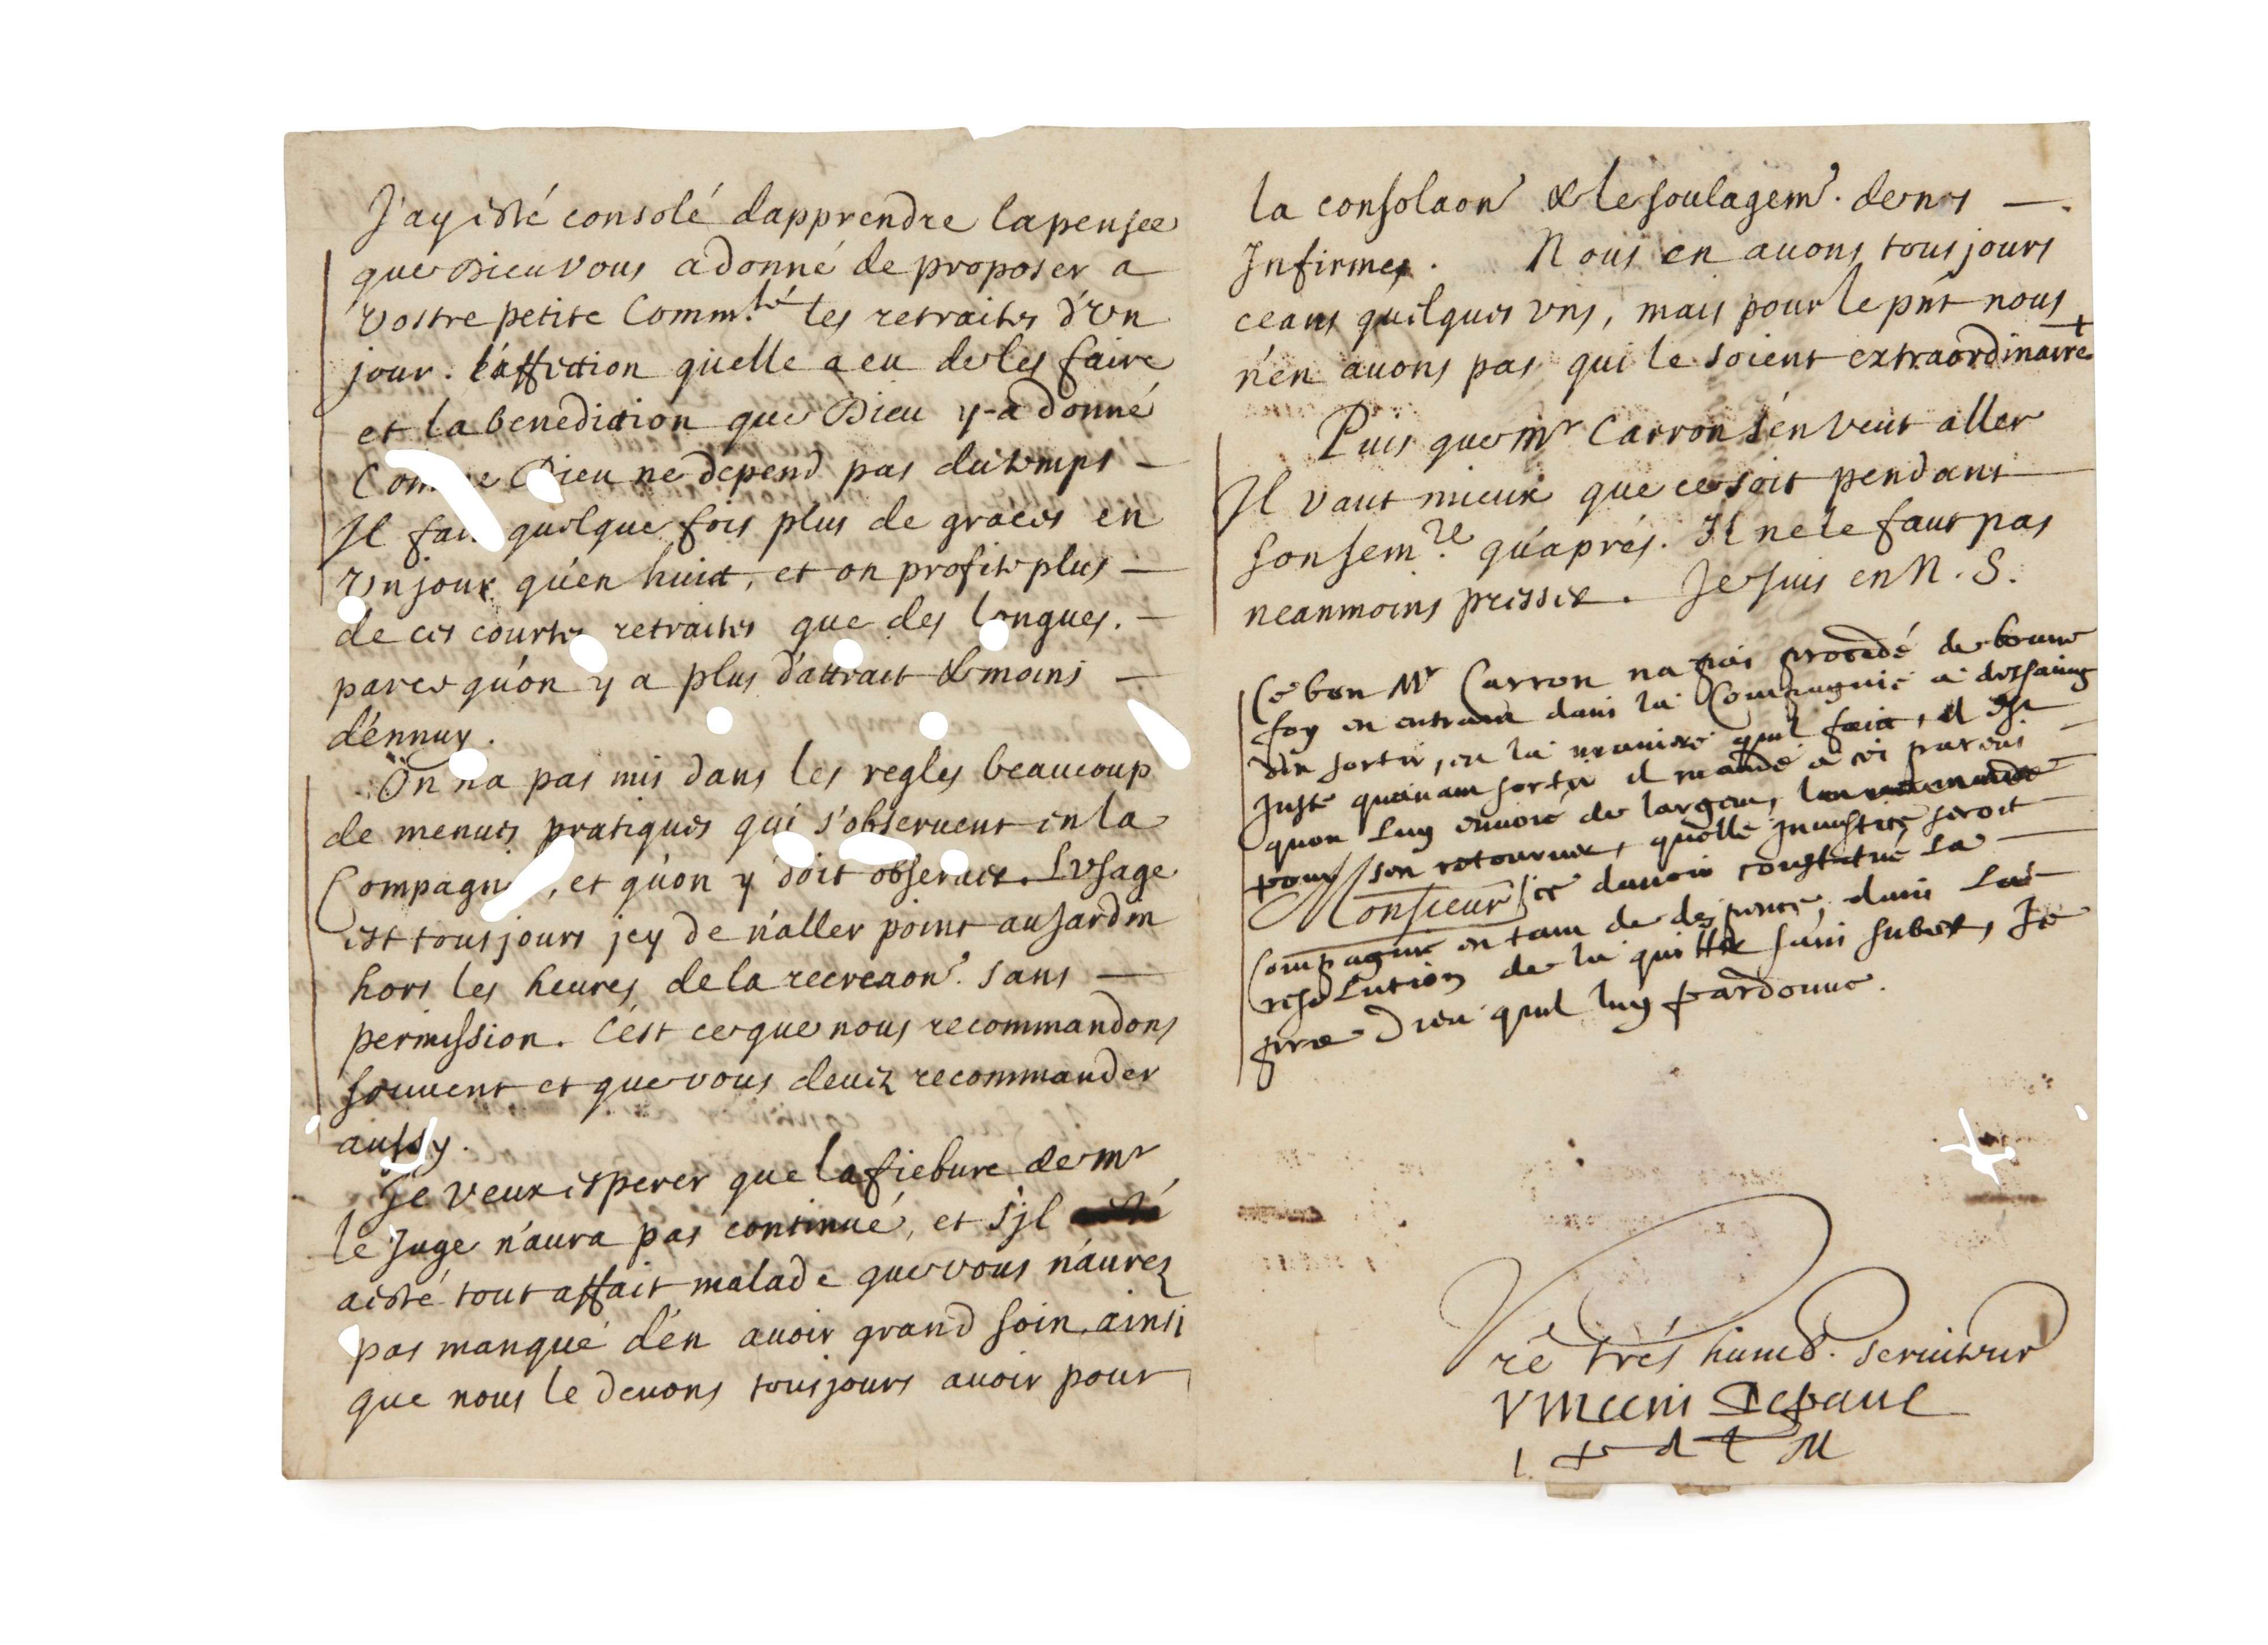 J'ay esté consolé dapprendre la pensee
que Dieu vous a donné de proposer a
vostre petite Comm.té les retraites d'un
jour. l'affection qu'elle a eu de les faire
et la benediction que Dieu y-a donné
Comme Dieu ne depend pas du temps —
Il fait quelque fois plus de graces en
Un jour qu'en huict, et on profite plus —
de ces courtes retraites que des longues. —
parce qu'on y a plus d'attrait & moins —
d'ennuy.
On na pas mis dans les regles beaucoup
de menues pratiques qui s'obseruent en la
Compagnie, et qu'on y doit obseruer. Lusage
est tousjours jcy de n'aller point au Jardin
hors les heures de la recreaon. sans —
permission. C'est ce que nous recommandons
souuent et que vous deuez recommander
aussy.
Je veux esperer que la fiebure de Mr
le Juge n'aura pas continué, et s'jl
a esté tout affait malade que vous n'aurez
pas manqué d'en auoir grand soin, ainsi
que nous le deuons tousjours auoir pour
la consolaon & le soulagem. de nos —.
Infirmes. Nous en auons tousjours
ceans quelques uns, mais pour le pnt nous
n'en auons pas qui le soient extraordinaire+
Puis que Mr Carron s'en veut aller
Il vaut mieux que ce soit pendant —
son sem.re qu'aprés. Il ne le faut pas
neanmoins presser. Je suis en N. S.
Ce bon Mr Carron na pas procedé de bonne
foy en entrant dans la Compagnie a dessaing
den sortir, en la maniere quil faict, il est
Juste quauant sortir il mande a ces parens —
quon Luy enuoie de largent,
pour sen retourner, quelle Jniustice seroit —
Monsieur
ce dauoir constitué La —
Compagnie en tant de despence, dans La
resolution de la quitter sans subiet, Je
prie Dieu quil luy pardonne.
re trés humb. seruiteur
Vincent Depaul
i p d l M